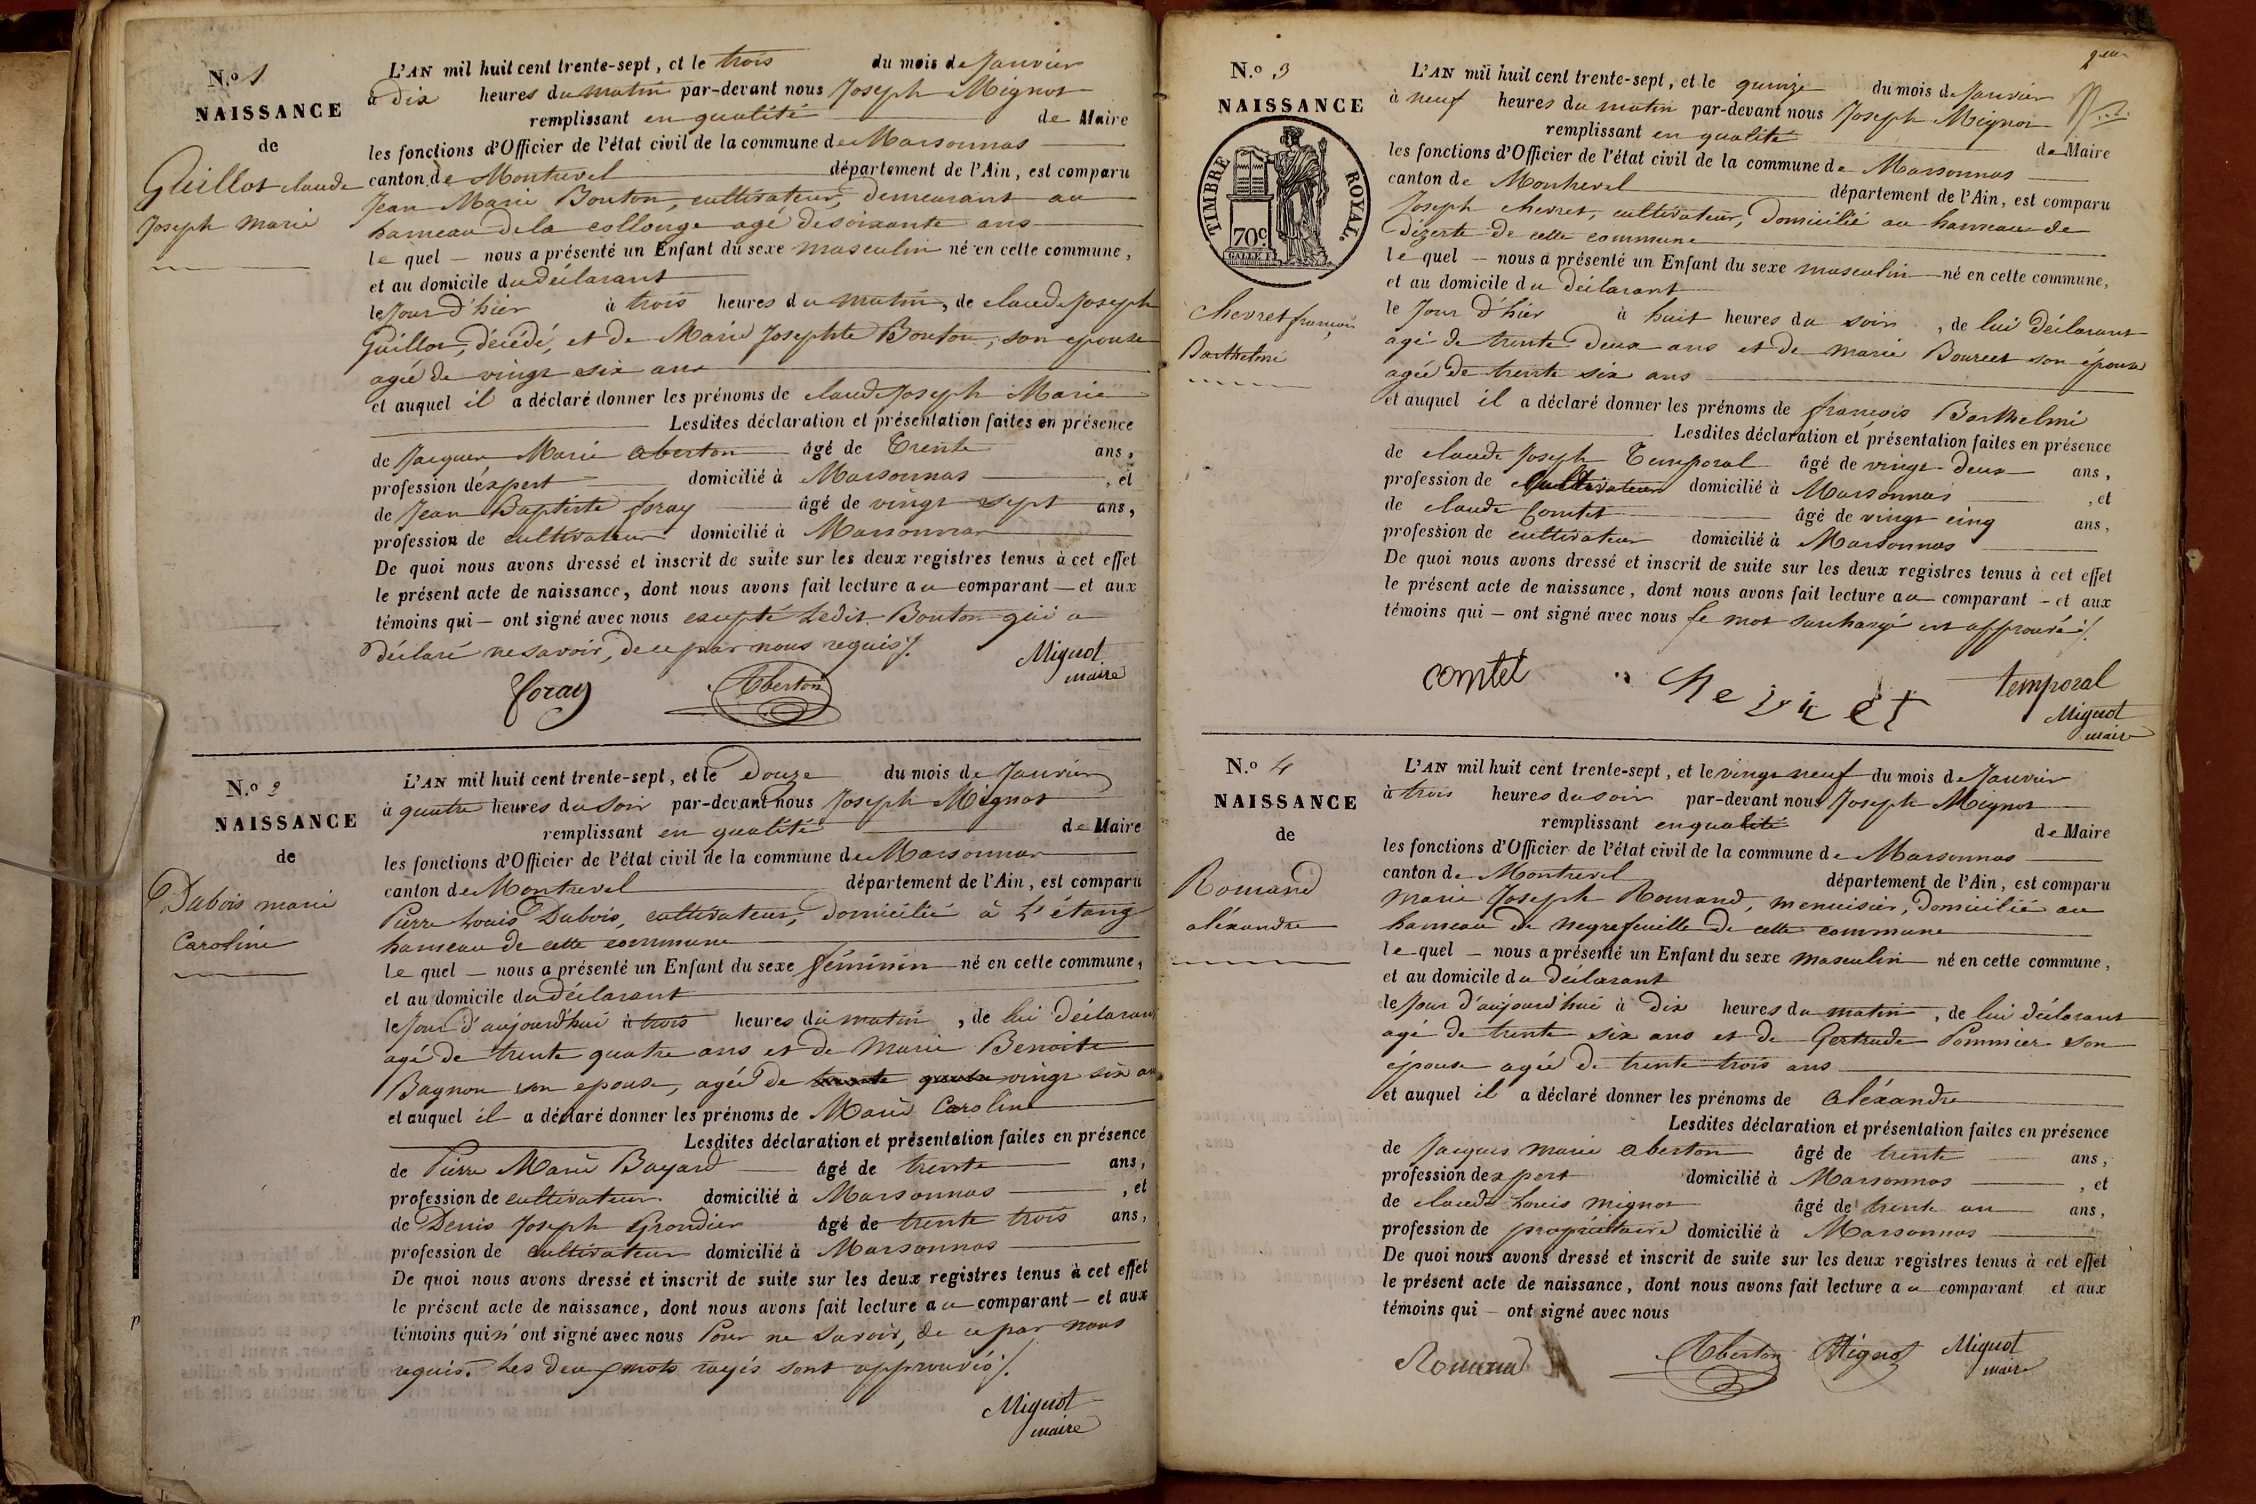 N.o 1
NAISSANCE
de
Guillot claude
Joseph marie
L'AN mil huit cent trente-sept, et le trois du mois de Janvier
à dix heures du matin par-devant nous Joseph Mignot
remplissant en qualité de Maire
les fonctions d'Officier de l'état civil de la commune de Marsonnas
canton de Montrevel département de l'Ain, est comparu
Jean Marie Bouton, cultivateur, demeurant au
hameau de la collonge agé de soixante ans
le quel nous a présenté un Enfant du sexe masculin né en cette commune,
et au domicile du déclarant
le Jour d'hier à trois heures du matin, de claude Joseph
Guillot, décédé, et de Marie Josephte Bouton, son epouse
agée de vingt six ans
et auquel il a déclaré donner les prénoms de claude Joseph Marie
Lesdites déclaration et présentation faites en présence
de Jacques Marie Aberton âgé de Trente ans,
profession d'éxpert domicilié à Marsonnas, et
de Jean Baptiste foray âgé de vingt sept ans,
profession de cultivateur domicilié à Marsonnas
De quoi nous avons dressé et inscrit de suite sur les deux registres tenus à cet effet
le présent acte de naissance, dont nous avons fait lecture au comparant et aux
témoins qui ont signé avec nous excepté Ledit Bouton qui a
déclaré ne savoir, de ce par nous requis ./.
Mignot
maire
foray Aberton
N.o 2
NAISSANCE
de
Dubois marie
Caroline
L'AN mil huit cent trente-sept, et le Douze du mois de Janvier
à quatre heures du soir par-devant nous Joseph Mignot
remplissant en qualité de Maire
les fonctions d'Officier de l'état civil de la commune de Marsonnas
canton de Montrevel département de l'Ain, est comparu
Pierre Louis Dubois, cultivateur, domicilié à L'étang
hameau de cette commune
le quel nous a présenté un Enfant du sexe féminin né en cette commune,
et au domicile du déclarant
le Jour d'aujourd'hui à trois heures du matin, de lui déclarant
agé de trente quatre ans et de Marie Benoite
Bagnon son epouse, agée de trente quatre vingt six ans
et auquel il a déclaré donner les prénoms de Marie Caroline
Lesdites déclaration et présentation faites en présence
de Pierre Marie Bayard âgé de trente ans,
profession de cultivateur domicilié à Marsonnas, et
de Denis Joseph Grondier âgé de trente trois ans,
profession de cultivateur domicilié à Marsonnas
De quoi nous avons dressé et inscrit de suite sur les deux registres tenus à cet effet
le présent acte de naissance, dont nous avons fait lecture au comparant et aux
témoins qui n'ont signé avec nous Pour ne savoir, de ce par nous
requis. Les deux mots rayés sont approuvés ./.
Mignot
maire
N.o 3
NAISSANCE
TIMBRE ROYAL.
70c
chevret françois
Barthelmi
L'AN mil huit cent trente-sept, et le quinze du mois de Janvier
à neuf heures du matin par-devant nous Joseph Mignot
remplissant en qualité de Maire
les fonctions d'Officier de l'état civil de la commune de Marsonnas
canton de Montrevel département de l'Ain, est comparu
Joseph chevret, cultivateur, Domicilié au hameau de
dézerte de cette commune
le quel nous a présenté un Enfant du sexe masculin né en cette commune,
et au domicile du déclarant
le Jour d'hier à huit heures du soir, de lui déclarant
agé de trente deux ans et de marie Bourcet son épouse
agée de trente six ans
et auquel il a déclaré donner les prénoms de françois Barthelmi
Lesdites déclaration et présentation faites en présence
de claude Joseph Temporal âgé de vingt deux ans,
profession de cultivateur domicilié à Marsonnas, et
de claude Comtet âgé de vingt cinq ans,
profession de cultivateur domicilié à Marsonnas
De quoi nous avons dressé et inscrit de suite sur les deux registres tenus à cet effet
le présent acte de naissance, dont nous avons fait lecture au comparant et aux
témoins qui ont signé avec nous le mot surchargé est approuvé ./.
comtet chevret temporal
Mignot
maire
N.o 4
NAISSANCE
de
Romand
aléxandre
L'AN mil huit cent trente-sept, et le vingt neuf du mois de Janvier
à trois heures du soir par-devant nous Joseph Mignot
remplissant en qualité de Maire
les fonctions d'Officier de l'état civil de la commune de Marsonnas
canton de Montrevel département de l'Ain, est comparu
marie Joseph Romand, menuisier, Domicilié au
hameau de negrefeuille de cette commune
le quel nous a présenté un Enfant du sexe masculin né en cette commune,
et au domicile du déclarant
le Jour d'aujourd'hui à dix heures du matin, de lui déclarant
agé de trente six ans et de Gertrude Pommier son
épouse agée de trente trois ans
et auquel il a déclaré donner les prénoms de aléxandre
Lesdites déclaration et présentation faites en présence
de Jacques marie aberton âgé de trente ans,
profession dexpert domicilié à Marsonnas, et
de claude Louis mignot âgé de trente un ans,
profession de propriétaire domicilié à Marsonnas
De quoi nous avons dressé et inscrit de suite sur les deux registres tenus à cet effet
le présent acte de naissance, dont nous avons fait lecture au comparant et aux
témoins qui ont signé avec nous
Romand Aberton Mignot Mignot
maire